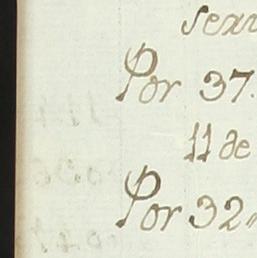 Por 37.
11 de
Por 32